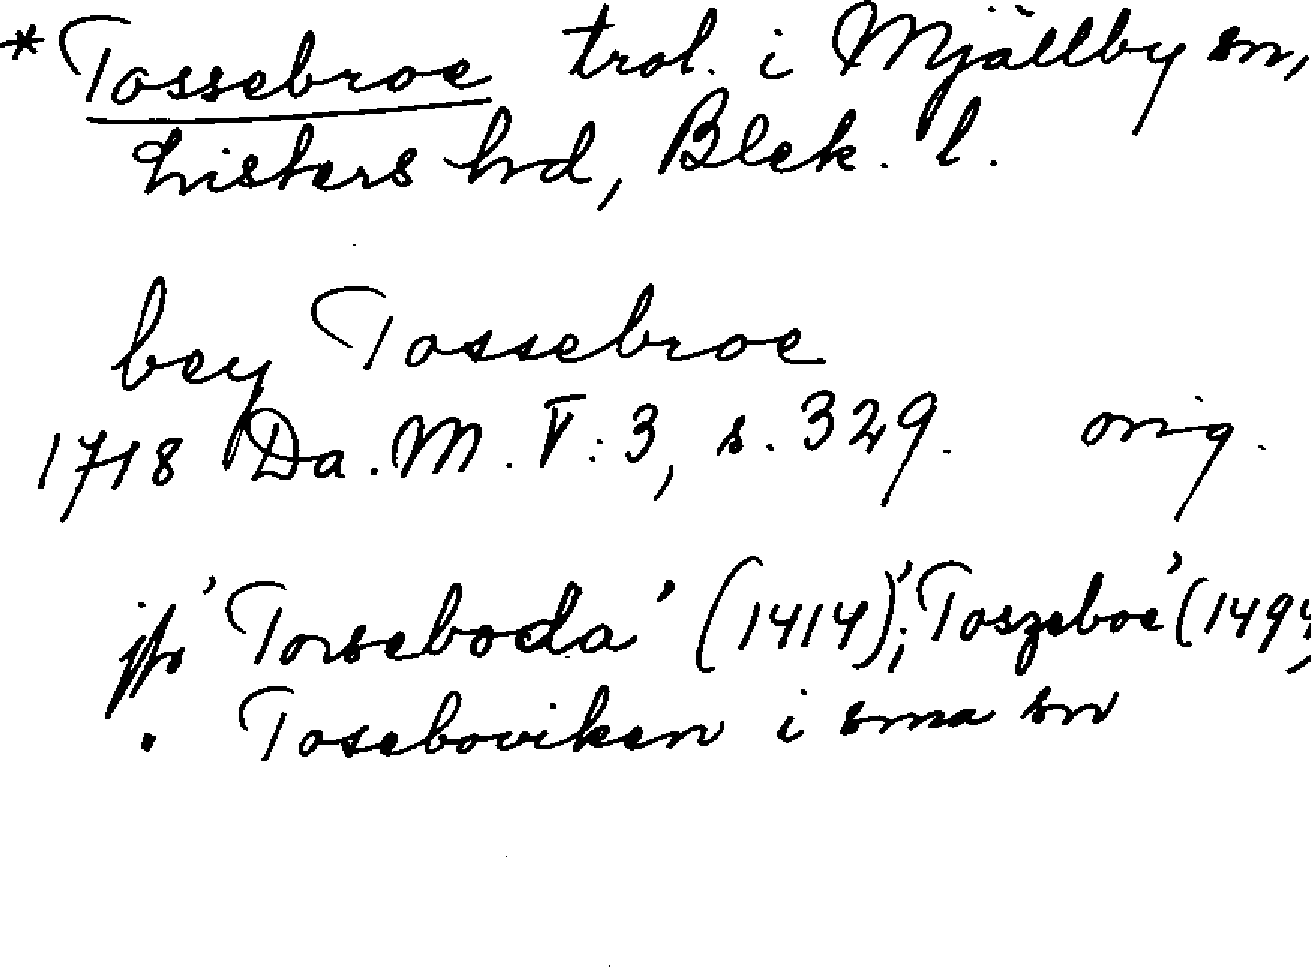 * Tossebroe trol. i Mjällby sn,
Listers hd, Blek. l.
bey Tossebroe
1718 Da. M. V:3, s. 329. orig.
jfr 'Torseboda' (1414); 'Toszeboe' (1494,
. Toseboviken i sma sn